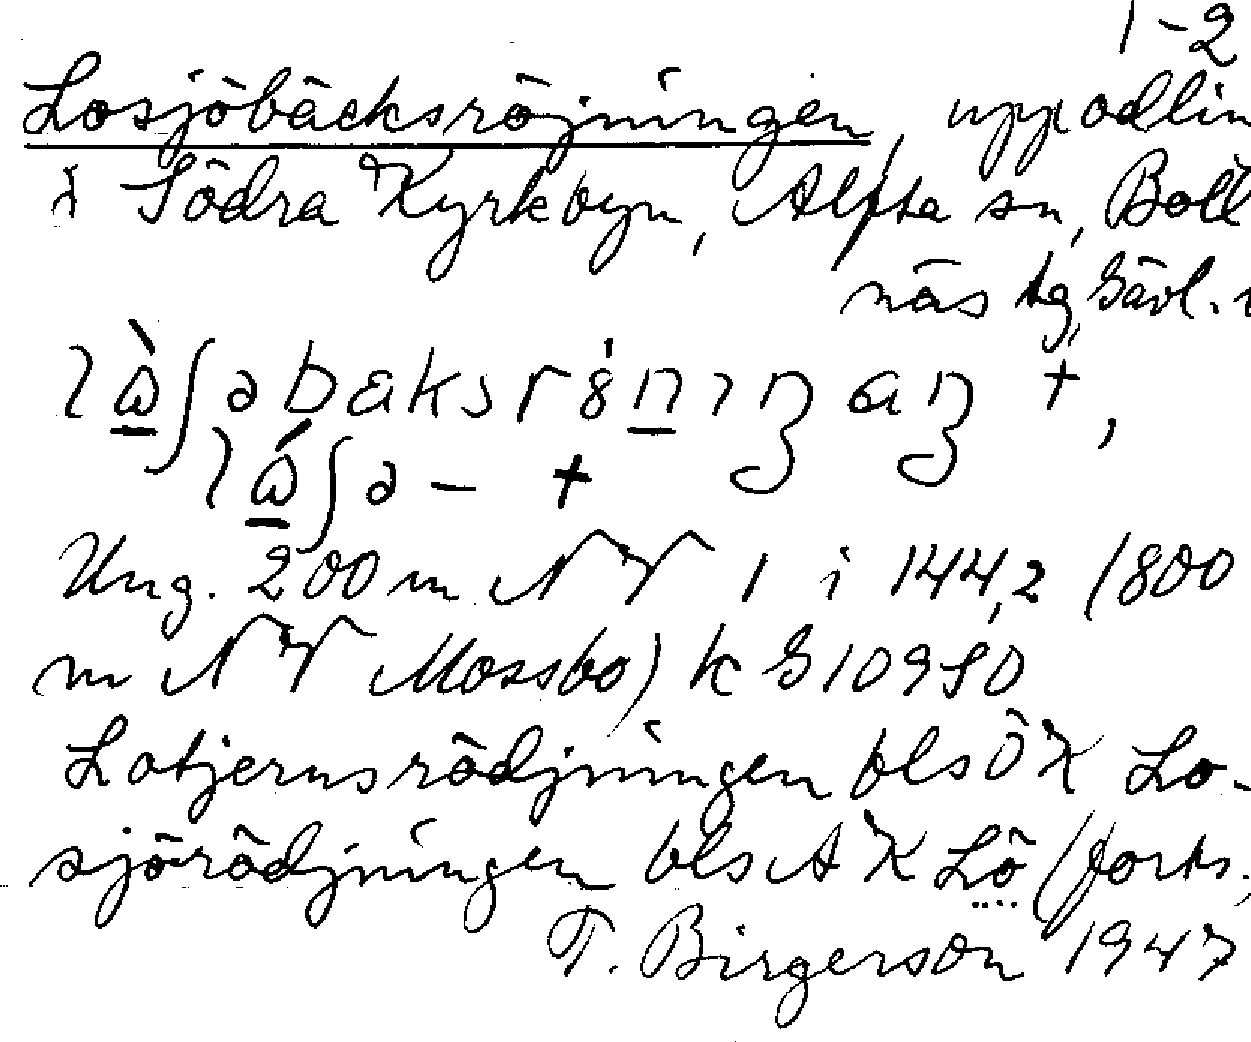 1-2
Losjöbäcksröjningen, uppodlin
i Södra Kyrkbyn, Alfta sn, Boll
näs tg, Gävl.
Ung. 200 m NV 1 i 144,2 (800
m NV Mossbo) k G10990
Lotjernsrödjningen bls Ö K Lo-
sjörödjningen bls A K Lö (forts.
T. Birgerson 1947